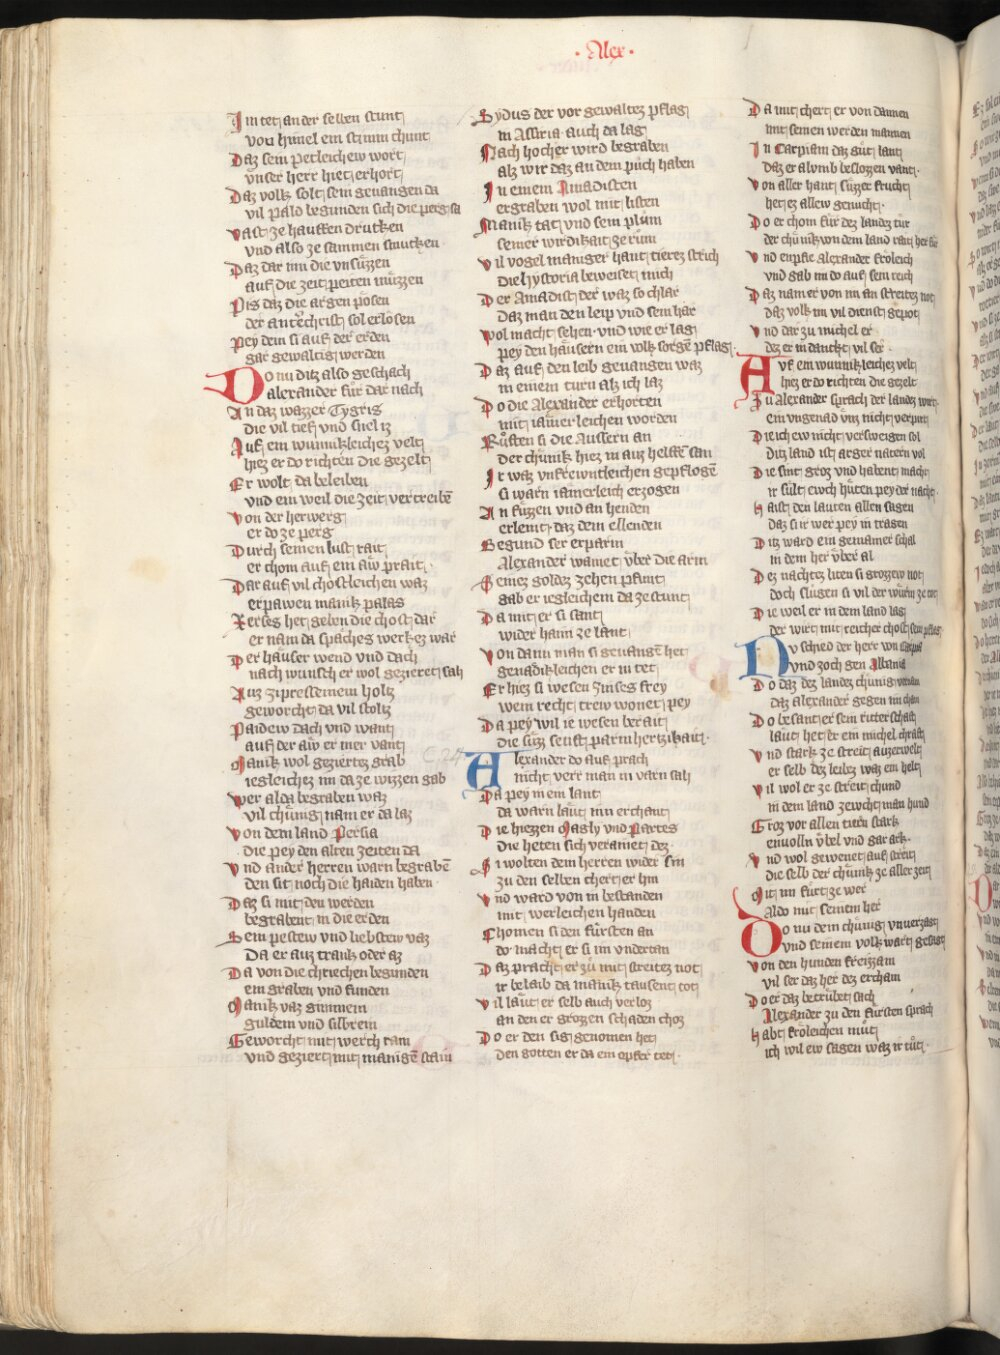 · Alex ·
Im tet an der selben stunt
von himel ein stimm chunt
Daz sein petleichew wort
unser herr hiet erhort
Daz volk solt sein gevangen da
vil pald begunden sich die perg sa
Vast ze hauffen drucken
vnd also ze sammen smucken
Daz dar inn die vnsuͤzzen
auf die zeit peiten muͤzzen
Pis daz die argen poͤsen
der antechrist sol erloͤsen
Pey dem si auf der erden
gar gewaltig werden
Do nu ditz also geschach
alexander fuͤr dar nach
An daz wazzer Tygris
die vil tief vnd snel iz
Auf ein wunnikleichez velt
hiez er do richten die gezelt
Er wolt da beleiben
vnd ein weil die zeit vertreibē
Von der herwerg
er do ze perg
Durch seinen lust rait
er chom auf ein aw prait
Dar auf vil chostleichen waz
erpawen manik palas
Xerses het geben die chost dar
er nam da spaches werkez war
Der haͤuser wend vnd dach
nach wunsch er wol gezieret sah
Auz zipressenem holtz
geworcht da vil stoltz
Paidew dach vnd want
auf der aw er mer vant
Manik wol geziertez grab
iegleichez im da ze wizzen gab
Wer alda begraben waz
vil chuͤnig nam er da laz
Von dem land Persia
die pey den alten zeiten da
Vnd ander herren warn begrabē
den sit noch die haiden haben
Daz si mit den werden
begrabent in die erden
Sein pestew vnd liebstew vaz
Da er auz trank oder az
Da von die chriechen begunden
ein graben vnd funden
Manik vaz gimmein
guldein vnd silbrein
Geworcht mit werch ram
vnd geziert mit manigē stain
Sydus der vor gewaltez pflag
in Assiria auch da lag
Nach hocher wird begraben
alz wir daz an dem puͤch haben
In einem Amadisten
ergraben wol mit listen
Manik tat vnd sein plum
seiner wirdikait ze rum
Vil vogel maniger hant tierez strich
die hystoria beweiset mich
Der Amadist der waz so chlar
Daz man den leip vnd sein har
Wol macht sehen vnd wie er lag
pey den haͤusern ein volk sorgē pflag
Daz auf den leib gevangen waz
in einem turn alz ich laz
Do die Alexander erhorten
mit iamerleichen worden
Ruͤften si die aussern an
der chuͤnik hiez in auz helffē san
Ir waz vnfrewntleichen gepflogē
si warn iaͤmerleich erzogen
An fuzzen vnd an henden
erlemt daz dem ellenden
Begund ser erparm
Alexander wainet vͤber die arm
Seinez goldez zehen pfunt
gab er iegleichem da ze stunt
Da mit er si sant
wider haim ze lant
Von dann man si gevangē het
genadikleichen er in tet
Er hiez si wesen zinses frey
wem recht trew wonet pey
Da pey wil ie wesen berait
die suͤz senft parmhertzikait
Alexander do auf prach
nicht verr man in varn sah
Da pey in ein lant
da warn laͤut inn erchant
Die hiezzen Magly vnd Partes
die heten sich verainet dez
Si wolten dem herren wider sin
zu den selben chert er hin
Vnd ward von in bestanden
mit werleichen handen
Chomen si den fuͤrsten an
do macht er si im vndertan
Daz pracht er zuͤ mit streitez not
ir belaib da manik tausent tot
Vil laͤut er selb auch verloz
an den er grozzen schaden choz
Do er den sig genomen het
den gotten er da ein opfer tet
Da mit chert er von dannen
mit seinen werden mannen
In Carpiam daz guͤt lant
daz er alumb beslozzen vant
Von aller hant suͤzzer frucht
het ez allew genucht
Do er chom fuͤr dez landez tuͤr
der chuͤnik von dem land rait her fuͤr
Vnd enpfie Alexander froͤleich
vnd gab im do auf sein reich
Daz nam er von im an streitez not
daz volk im vil dienst gepot
Vnd dar zu michel er
dez er in danckt vil ser
Auf ein wunnikleichez velt
hiez er do richten die gezelt
Zu Alexander sprach der landez wirt
ein vngenad vns nicht verpirt
Die ich ew nicht versweigen sol
Ditz land ist arger natern vol
Die sint groz vnd habent macht
ir suͤlt ewch huͤten pey der nacht
Haist den laͤuten allen sagen
daz si ir wer pey in tragen
Ditz ward ein gemainer schal
in dem her vͤber al
Dez nachtez liten si grozzew not
doch sluͤgen si vil der wuͤrm ze tot
Die weil er in dem land lag
der wirt mit reicher chost sein pflag
Nv schied der herr von Carpia
vnd zoch gen Albania
Do daz dez landez chuͤnig vernam
daz alexander gegen im cham
Do besant er sein ritterschaft
laͤut het er ein michel chraft
Vnd stark ze streit auzerwelt
er selb dez leibez waz ein helt
Vil wol er ze streit chund
in dem land zewcht man hund
Groz vor allen tiern stark
envolln vͤbel vnd gar ark
Vnd wol gewenet auf streit
die selb der chuͤnik ze aller zeit
Mit im fuͤrt ze wer
Aldo mit seinem her
Do nu dem chuͤnig vnverzagt
vnd seinem volk wart gesagt
Von den hunden freizzam
vil ser daz her dez ercham
Do er daz betruͤbet sach
Alexander zu den fuͤrsten sprach
Habt froͤleichen muͤt
ich wil ew sagen waz ir tuͤt